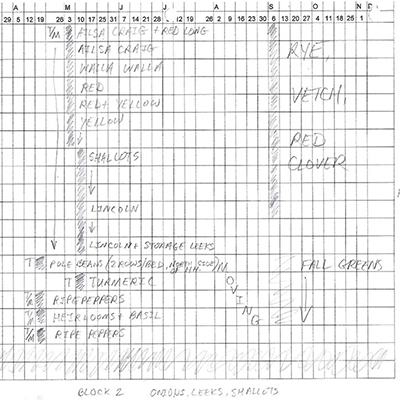 A M J J A S O N D
29 5 12 19 26 3 10 17 24 31 7 14 21 28 5 12 19 26 2 9 16 23 30 6 13 20 27 4 11 18 25 1
T/M AILSA CRAIG + RED LONG
AILSA CRAIG
WALLA WALLA
RED
RED + YELLOW
YELLOW
SHALLOTS
LINCOLN
LINCOLN + STORAGE LEEKS
RYE,
VETCH,
RED
CLOVER
T POLE BEANS (2 ROWS/BED, NORTH SIDE)
T TURMERIC
T/M RIPE PEPPERS
T/M HEIRLOOMS + BASIL
T/M RIPE PEPPERS
MOVING
FALL GREENS
BLOCK 2 ONIONS, LEEKS, SHALLOTS